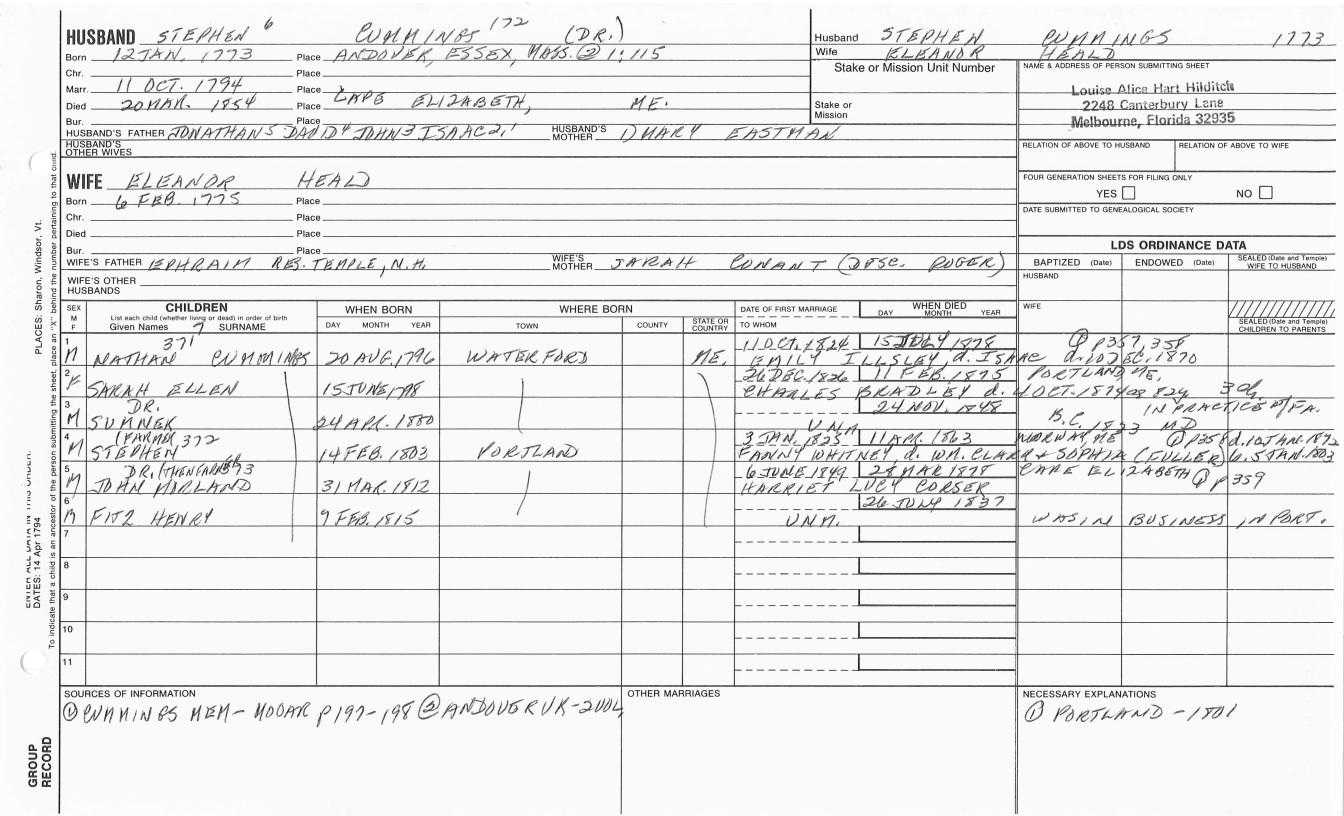 HUSBAND STEPHEN 6 CUMMINGS 172 (DR.)
Born 12 JAN. 1773 Place ANDOVER, ESSEX, MASS. ② 1:115
Chr. Place
Marr. 11 OCT. 1794 Place
Died 20 MAR. 1854 Place CAPE ELIZABETH, ME.
Bur. Place
HUSBAND'S FATHER JONATHAN 5 DAVID 4 JOHN 3 ISAAC 2,1 HUSBAND'S MOTHER 1) MARY EASTMAN
HUSBAND'S OTHER WIVES
Husband STEPHEN CUMMINGS 1773
Wife ELEANOR HEALD
Stake or Mission Unit Number
Stake or Mission
NAME & ADDRESS OF PERSON SUBMITTING SHEET
Louise Alice Hart Hilditch
2248 Canterbury Lane
Melbourne, Florida 32935
RELATION OF ABOVE TO HUSBAND RELATION OF ABOVE TO WIFE
FOUR GENERATION SHEETS FOR FILING ONLY
YES NO
DATE SUBMITTED TO GENEALOGICAL SOCIETY
WIFE ELEANOR HEALD
Born 6 FEB. 1775 Place
Chr. Place
Died Place
Bur. Place
WIFE'S FATHER EPHRAIM RES. TEMPLE, N.H. WIFE'S MOTHER SARAH CONANT (DESC. ROGER)
WIFE'S OTHER HUSBANDS
LDS ORDINANCE DATA
BAPTIZED (Date) ENDOWED (Date) SEALED (Date and Temple) WIFE TO HUSBAND
HUSBAND
WIFE
SEALED (Date and Temple) CHILDREN TO PARENTS
SEX M F CHILDREN WHEN BORN WHERE BORN DATE OF FIRST MARRIAGE WHEN DIED
List each child (whether living or dead) in order of birth
Given Names 7 SURNAME DAY MONTH YEAR TOWN COUNTY STATE OR COUNTRY TO WHOM DAY MONTH YEAR
1 371 11 OCT. 1824 15 JULY 1878 ① p 357, 358
M NATHAN CUMMINGS 20 AUG. 1796 WATERFORD ME. EMILY ILLSLEY d. ISAAC d. 10 DEC. 1870
2 26 DEC. 1826 11 FEB. 1875 PORTLAND, ME.
F SARAH ELLEN 15 JUNE 1798 CHARLES BRADLEY d. 4 OCT. 1874 ae 82y 3 ch.
3 DR. 24 NOV. 1848 B.C. 1823 MD IN PRACTICE w/FA.
M SUMNER 24 APR. 1800 UNM.
4 (FARMER) 372 3 JAN. 1825 11 APR. 1863 NORWAY, ME ① p 358 d. 10 JAN. 1892
M STEPHEN 14 FEB. 1803 PORTLAND FANNY WHITNEY d. WM. CLARK + SOPHIA (FULLER) b. 5 JAN. 1803
5 DR. (THEN FARMER) 373 6 JUNE 1849 28 MAR 1878 CAPE ELIZABETH ① p 359
M JOHN MORLAND 31 MAR. 1812 HARRIET LUCY CORSER
6 26 JULY 1837
M FITZ HENRY 9 FEB. 1815 UNM. WAS IN BUSINESS IN PORT.
7
8
9
10
11
SOURCES OF INFORMATION
① CUMMINGS MEM - MOOAR p 197-198 ② ANDOVER VR - 2VOL
OTHER MARRIAGES
NECESSARY EXPLANATIONS
① PORTLAND - 1801
PLACES: Sharon, Windsor, Vt.
ENTER ALL DATA IN THIS ORDER:
DATES: 14 Apr 1794
To indicate that a child is an ancestor of the person submitting the sheet, place an "X" behind the number pertaining to that child.
GROUP RECORD